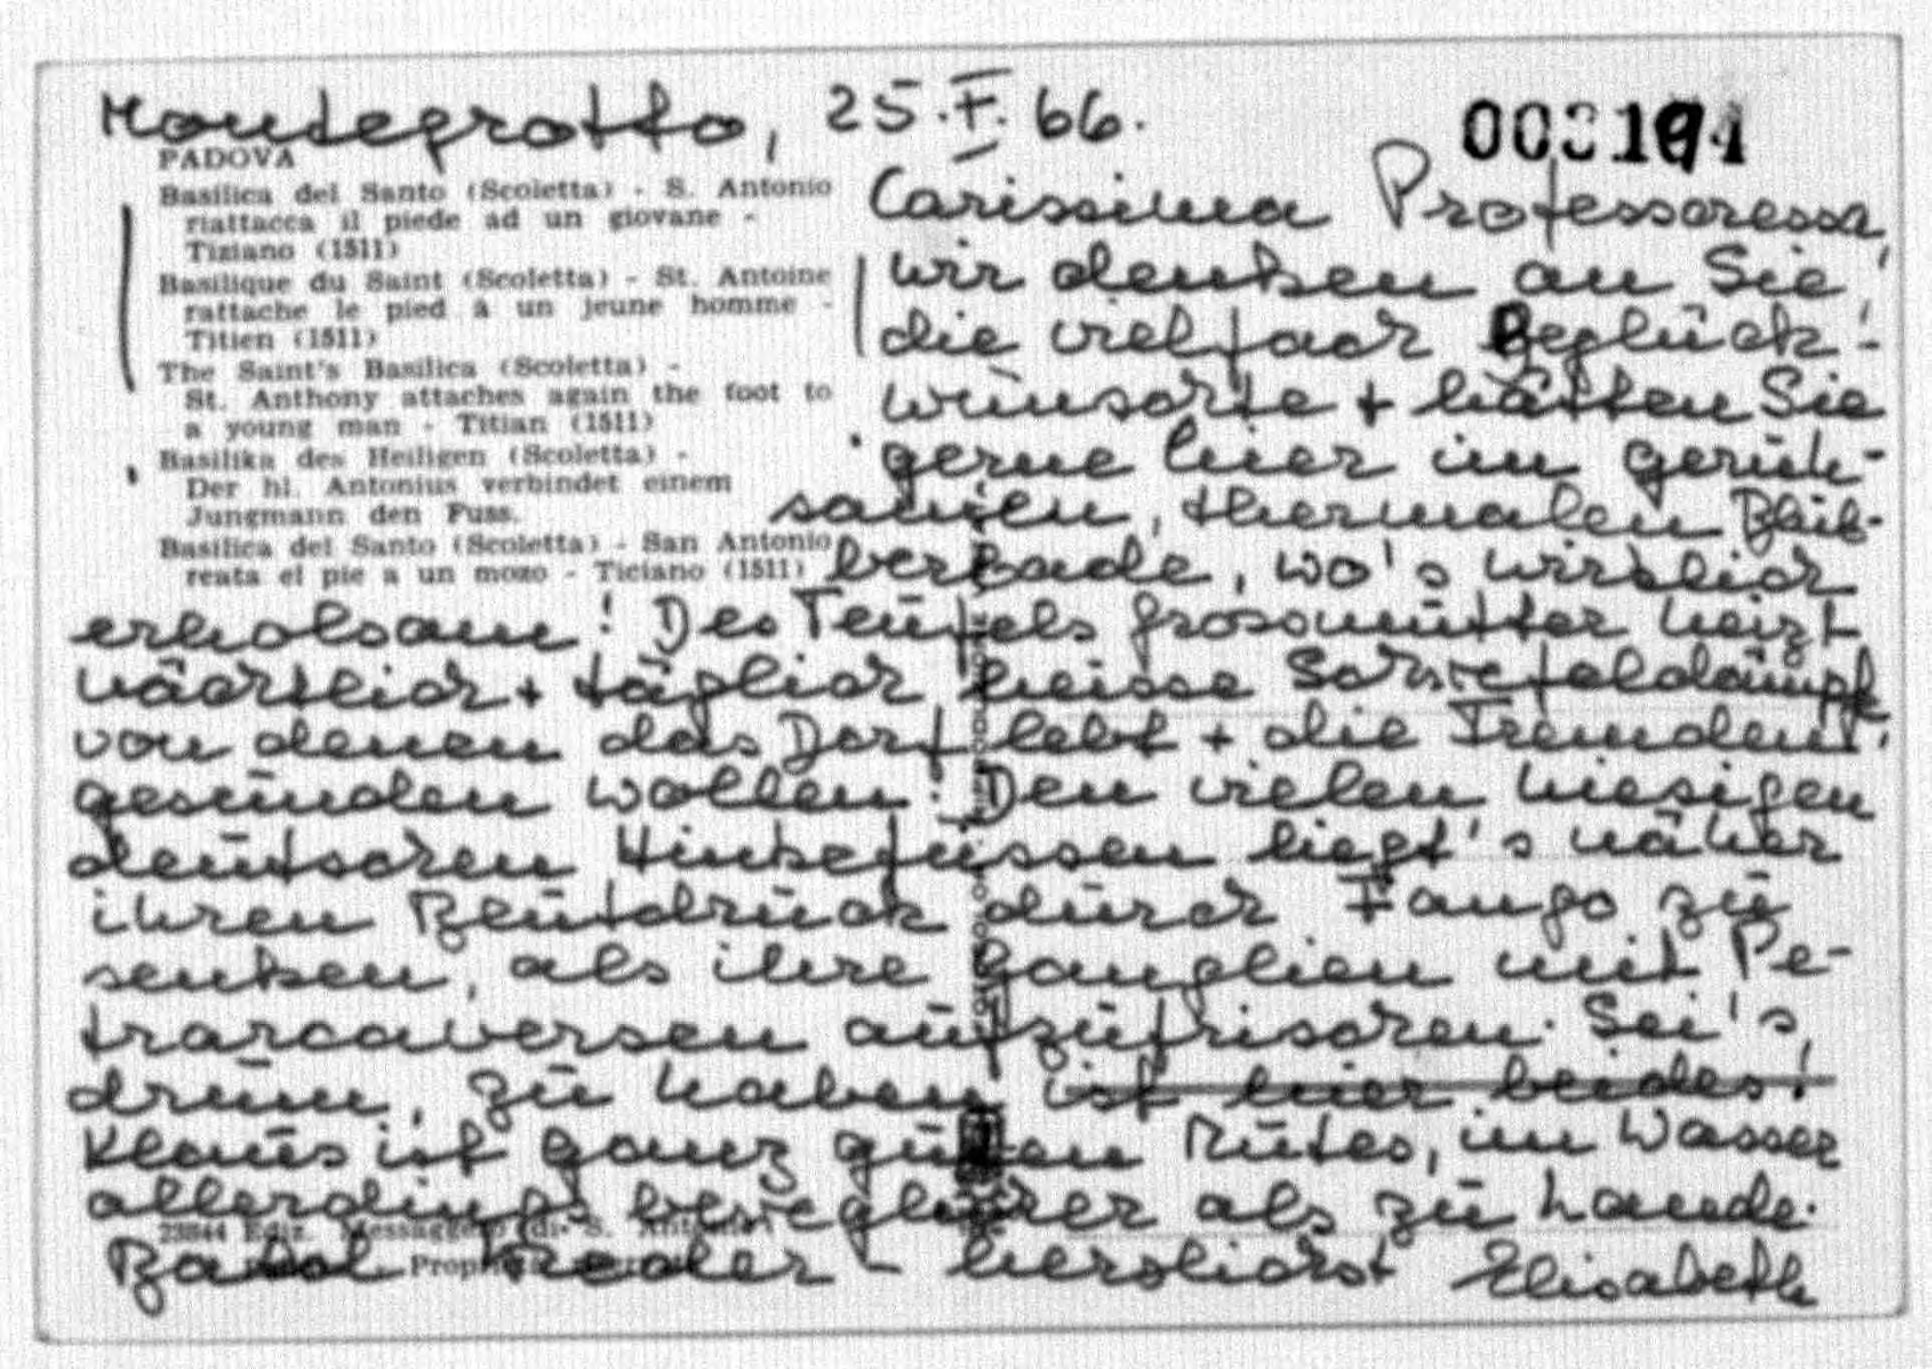 Montegrotto, 25.V.66.
PADOVA
Basilica del Santo (Scoletta) - S. Antonio
riattacca il piede ad un giovane -
Tiziano (1511)
Basilique du Saint (Scoletta) - St. Antoine
rattache le pied à un jeune homme -
Titien (1511)
The Saint's Basilica (Scoletta) -
St. Anthony attaches again the foot to
a young man - Titian (1511)
Basilika des Heiligen (Scoletta) -
Der hl. Antonius verbindet einem
Jungmann den Fuss.
Basilica del Santo (Scoletta) - San Antonio
reata el pie a un mozo - Ticiano (1511)
Carissima Professoressa,
wir denken an Sie,
die vielfach Beglück-
wünschte + hätten Sie
gerne hier im geruh-
samen, thermalen
wo's wirklich
erholsam! Des Teufels Grossmutter heizt
nächtlich + täglich heisse Schwefeldämpfe
von denen das Dorf lebt + die Fremden
gesunden wollen! Den vielen hiesigen
deutschen Hinkefüssen liegt's näher
ihren durch Fango zu
senken, als ihre Ganglien mit Pe-
trarcaversen aufzufrischen. Sei's
drum, zu haben ist hier beides!
Klaus ist ganz guten Mutes, im Wasser
allerdings beweglicher als zu Lande.
23844 Ediz. Messaggero di S. Antonio
Bald - herzlichst Elisabeth